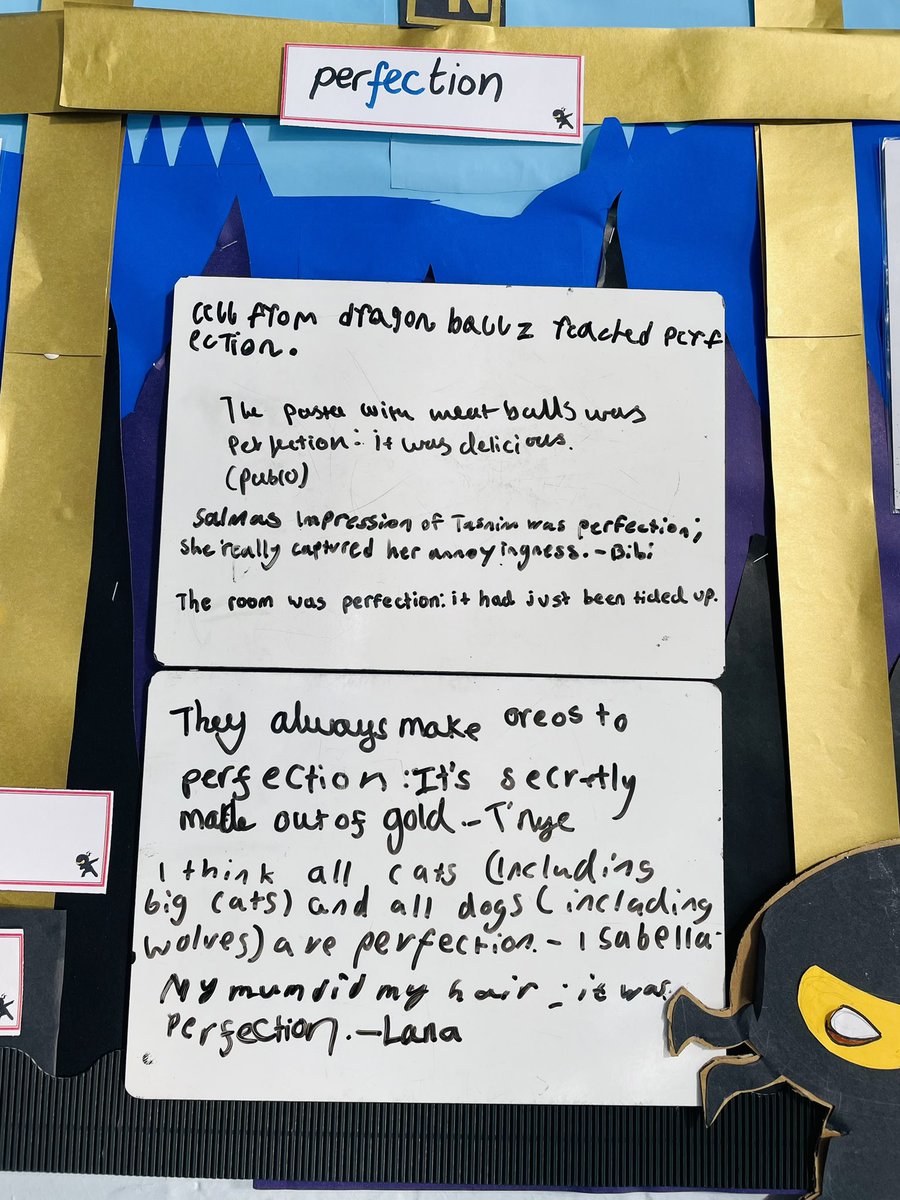 perfection
Cell from dragon ball z reached perf
ection.
The pasta with meat balls was
perfection: it was delicious.
(Pablo)
Salmas impression of Tasnim was perfection;
she really captured her annoyingness.-Bibi
The room was perfection: it had just been tidied up.
They always make oreos to
perfection: It's secretly
made out of gold.-T'nye
I think all cats (Including
big cats) and all dogs (including
wolves) are perfection.- Isabella
My mum did my hair ; it was
perfection.-Lana